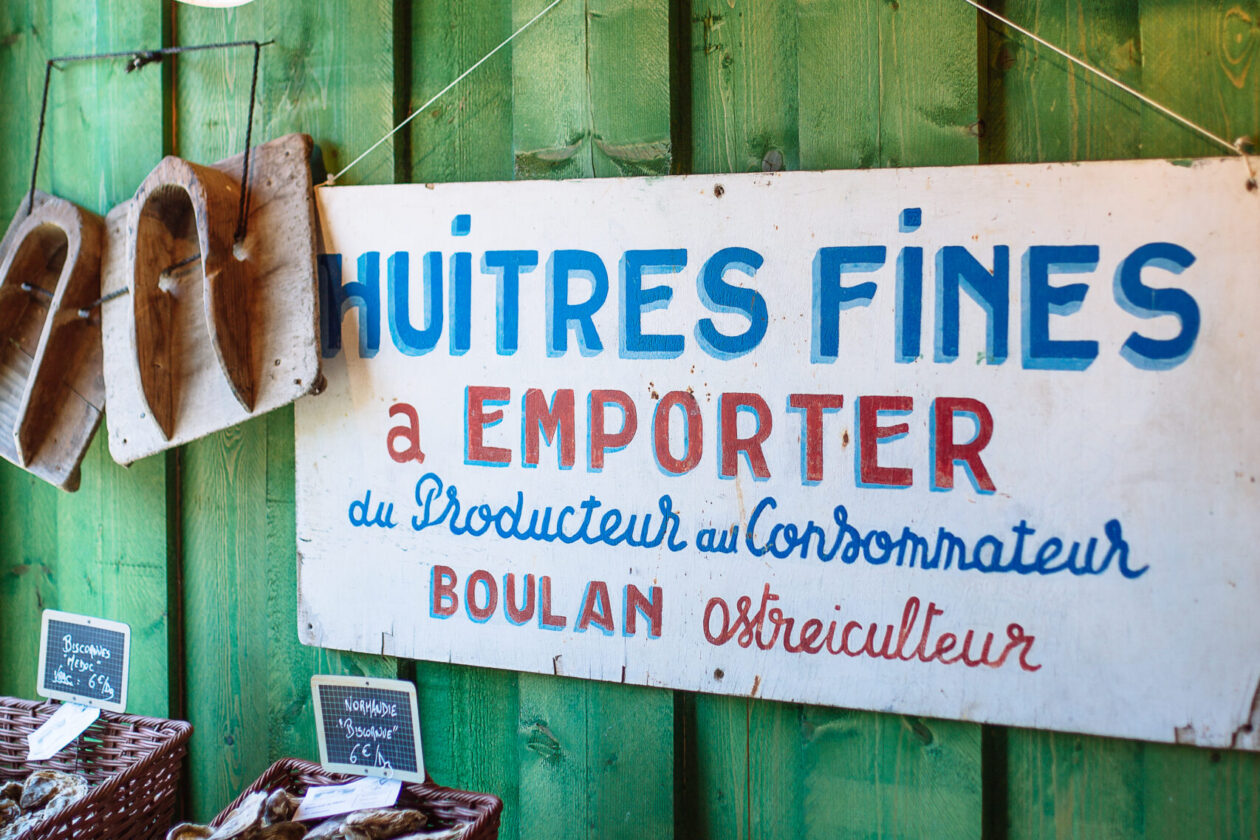 HUiTRES FiNES
a EMPORTER
du Producteur au Consommateur
BOULAN Ostreiculteur
BISCORNUES
"MEDOC"
6€/Dg
NORMANDIE
"BISCORNUE"
6€/Dg